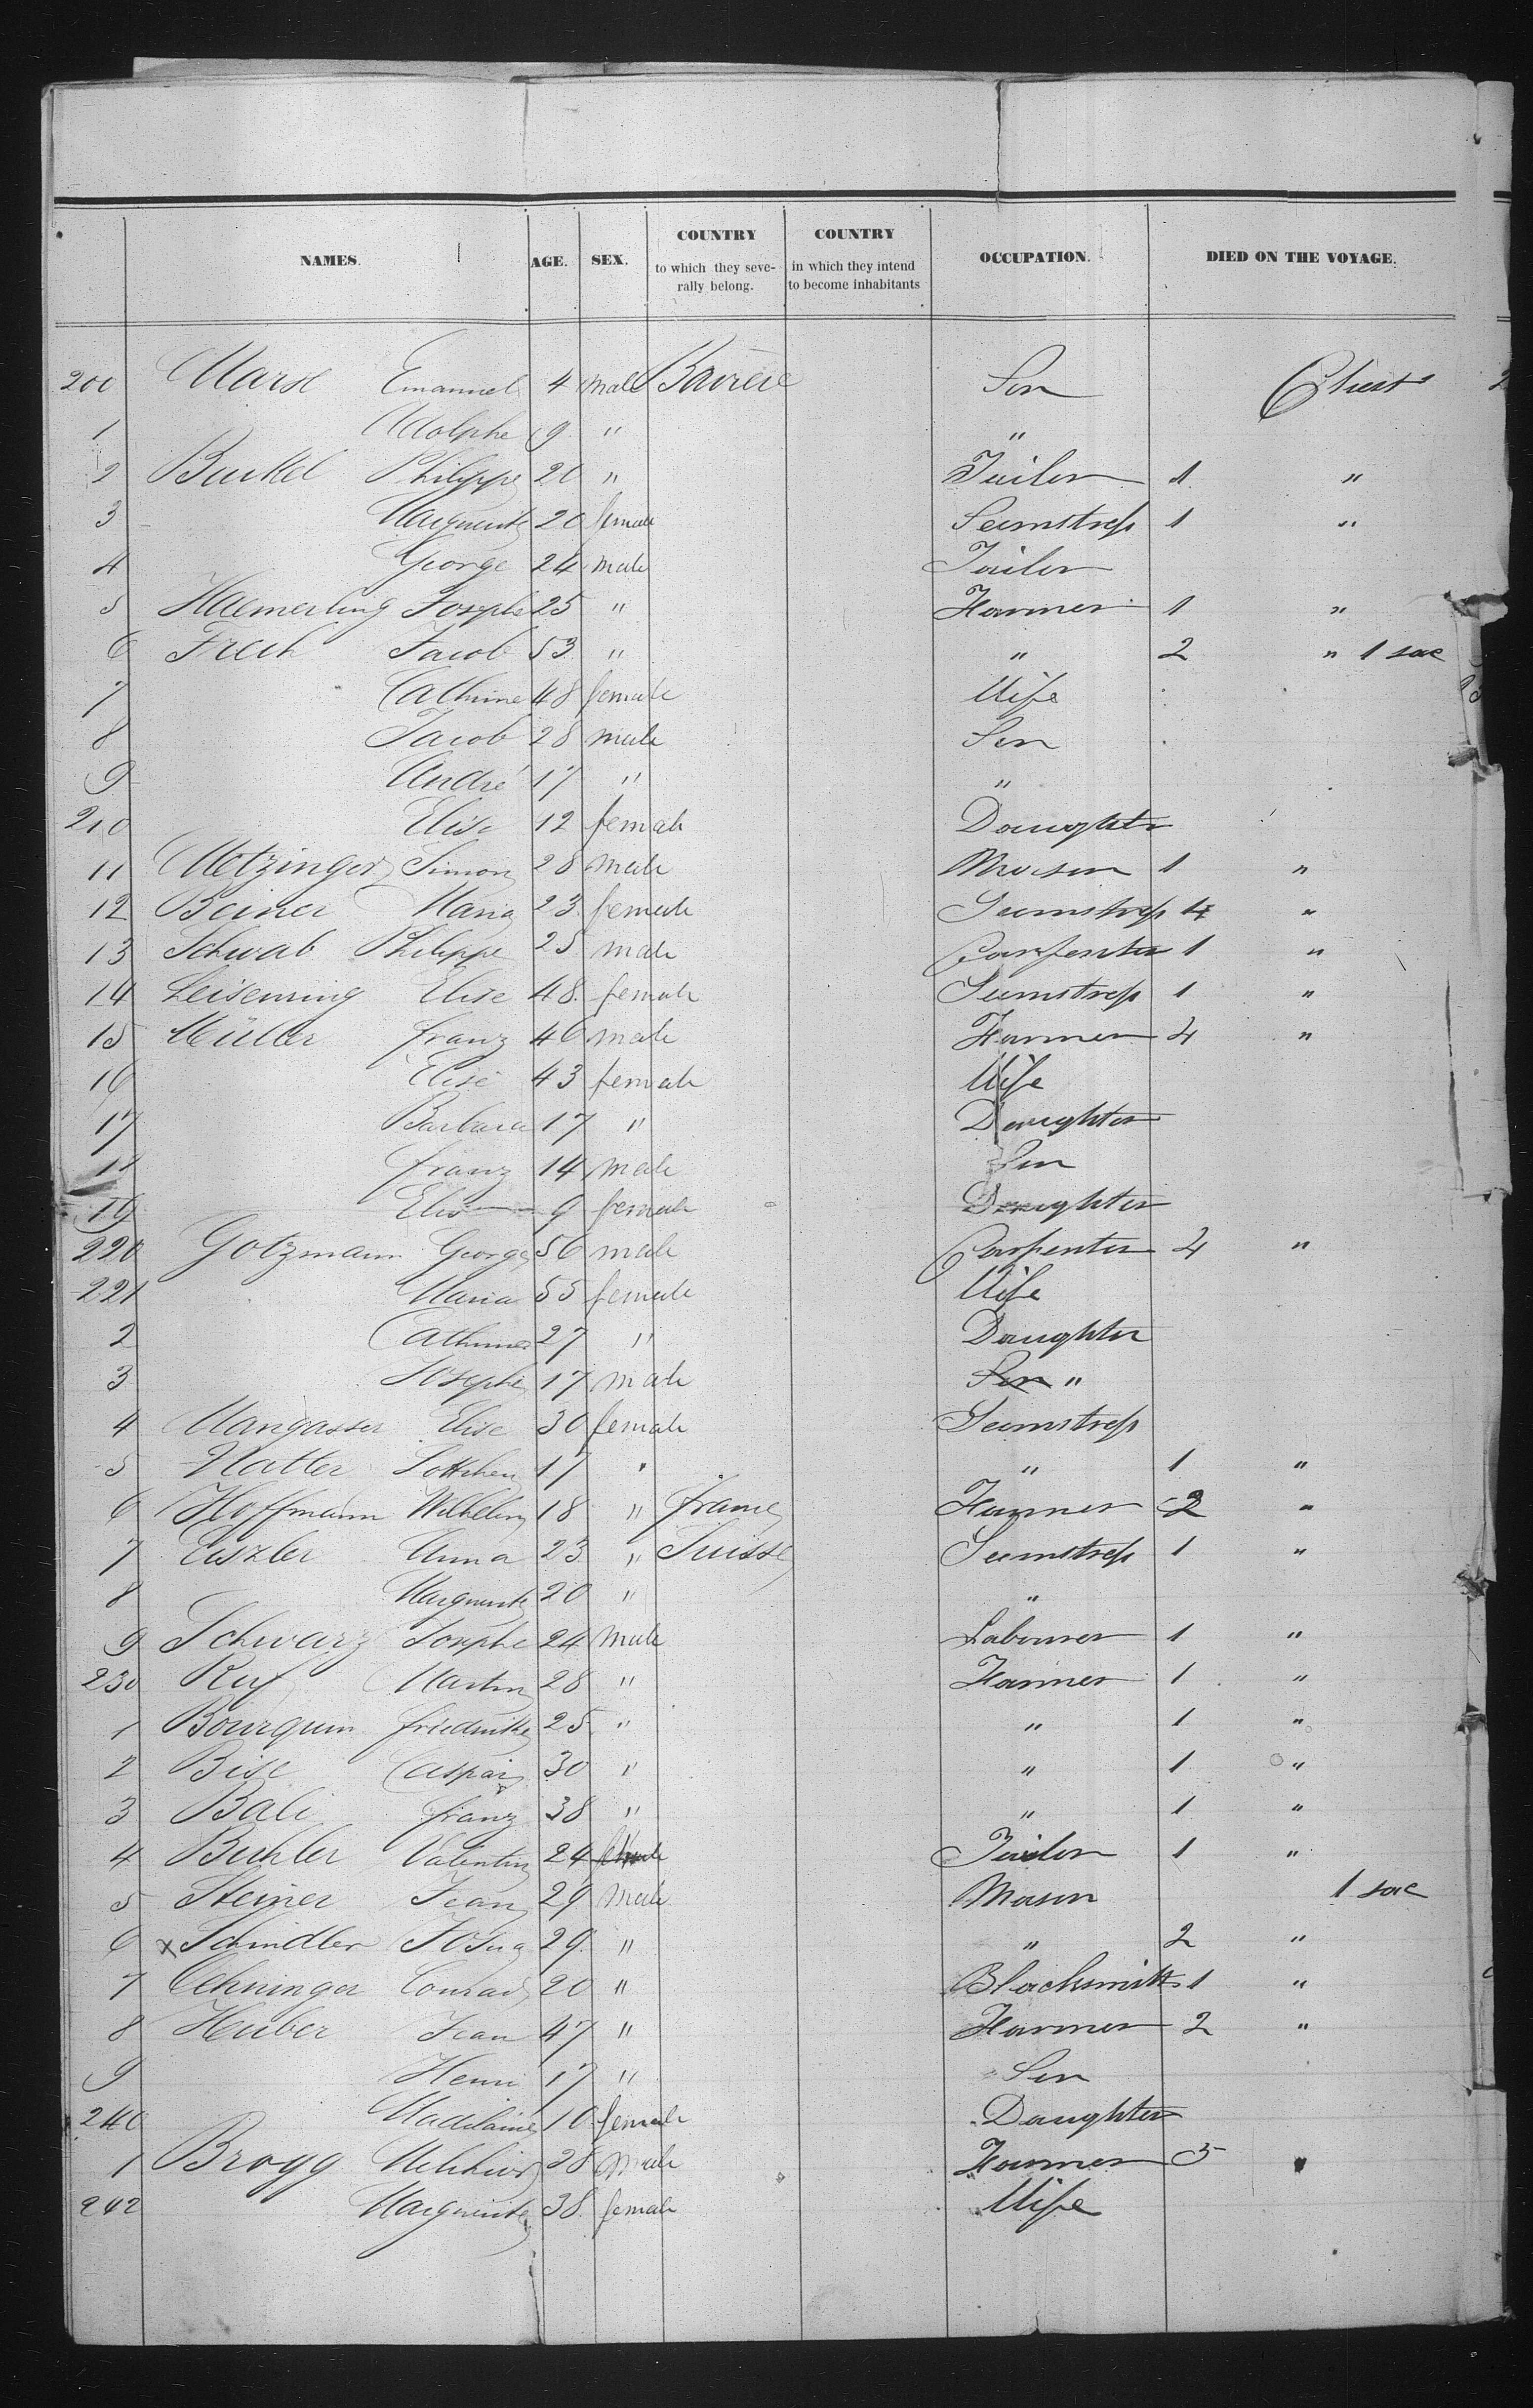 NAMES. AGE. SEX. COUNTRY to which they severally belong. COUNTRY in which they intend to become inhabitants OCCUPATION. DIED ON THE VOYAGE.
200 Marx Emanuel 4 male Bavière Son Chest
1 Adolphe 9 " "
2 Burkel Philippe 20 " Tailor 1 "
3 Marguerite 20 female Seamstress 1 "
4 George 24 male Tailor
5 Haemerling Joseph 25 " Farmer 1 "
6 Frech Jacob 53 " " 2 " 1 sac
7 Cathrine 48 female Wife
8 Jacob 28 male Son
9 André 17 " "
210 Elise 12 female Daughter
11 Metzinger Simon 28 male Mason 1 "
12 Beiner Maria 23 female Seamstress 1 "
13 Schwab Philippe 25 male Carpenter 1 "
14 Leisenring Elise 48 female Seamstress 1 "
15 Müller Franz 46 male Farmer 4 "
16 Elise 43 female Wife
17 Barbara 17 " Daughter
18 Franz 14 male Son
19 Elise 9 female Daughter
220 Gotzmann George 56 male Carpenter 4 "
221 Maria 55 female Wife
2 Cathrine 27 " Daughter
3 Josephe 17 male Son "
4 Mangasser Elise 30 female Seamstress
5 Natter Lottchen 17 " " 1 "
6 Hoffmann Wilhelm 18 " France Farmer 2 "
7 Eiszler Anna 23 " Suisse Seamstress 1 "
8 Marguerite 20 " "
9 Schwarz Josephe 24 male Labourer 1 "
230 Ruf Martin 28 " Farmer 1 "
1 Bourquin Friedricke 25 " " 1 "
2 Bise Caspar 30 " " 1 "
3 Bali Franz 38 " " 1 "
4 Buhler Valentin 24 Tailor 1 "
5 Steiner Jean 29 male Mason 1 sac
6 x Schindler Josua 29 " " 2 "
7 Conrad 20 " Blacksmith 1 "
8 Huber Jean 47 " Farmer 2 "
9 Henri 17 " Son
240 Madelaine 10 female Daughter
1 Brogg Melchior 28 male Farmer 5 "
242 Marguerite 38 female Wife